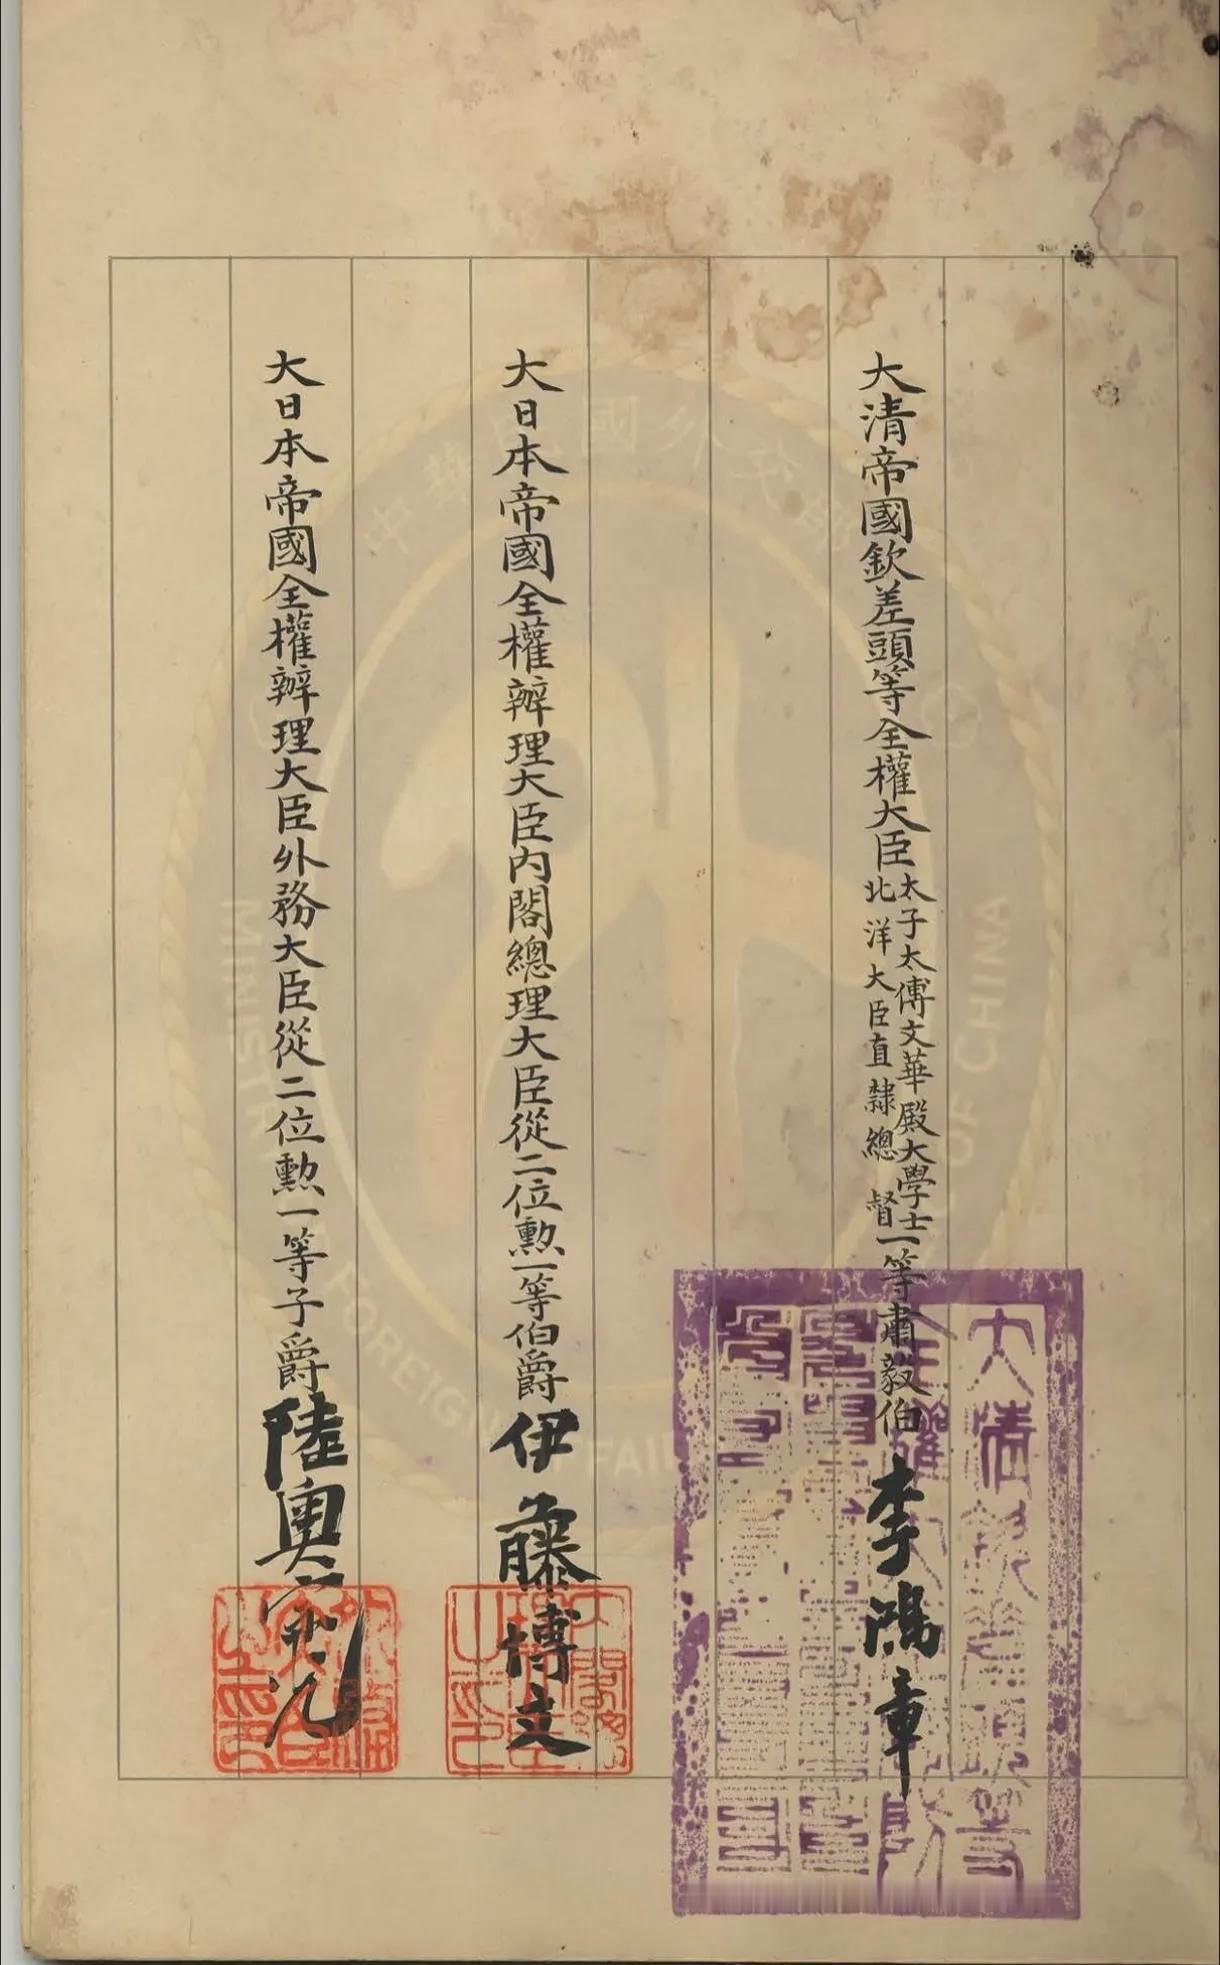 大清帝國欽差頭等全權大臣太子太傅文華殿大學士
北洋大臣直隸總督一等肅毅伯李鴻章
大日本帝國全權辦理大臣內閣總理大臣從二位勳一等伯爵伊藤博文
大日本帝國全權辦理大臣外務大臣從二位勳一等子爵陸奧宗光
大清欽差頭等
全權大臣
中華民國外交部
MINISTRY OF FOREIGN AFFAIRS
OF CHINA